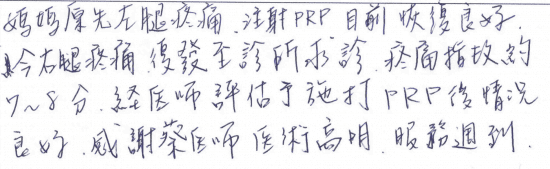 媽媽原先左腿疼痛.注射PRP目前恢復良好.
今右腿疼痛.復發至診所求診.疼痛指数約
7~8分.経医師評估予施打PRP後情況
良好.感謝蔡医師医術高明.服務週到.